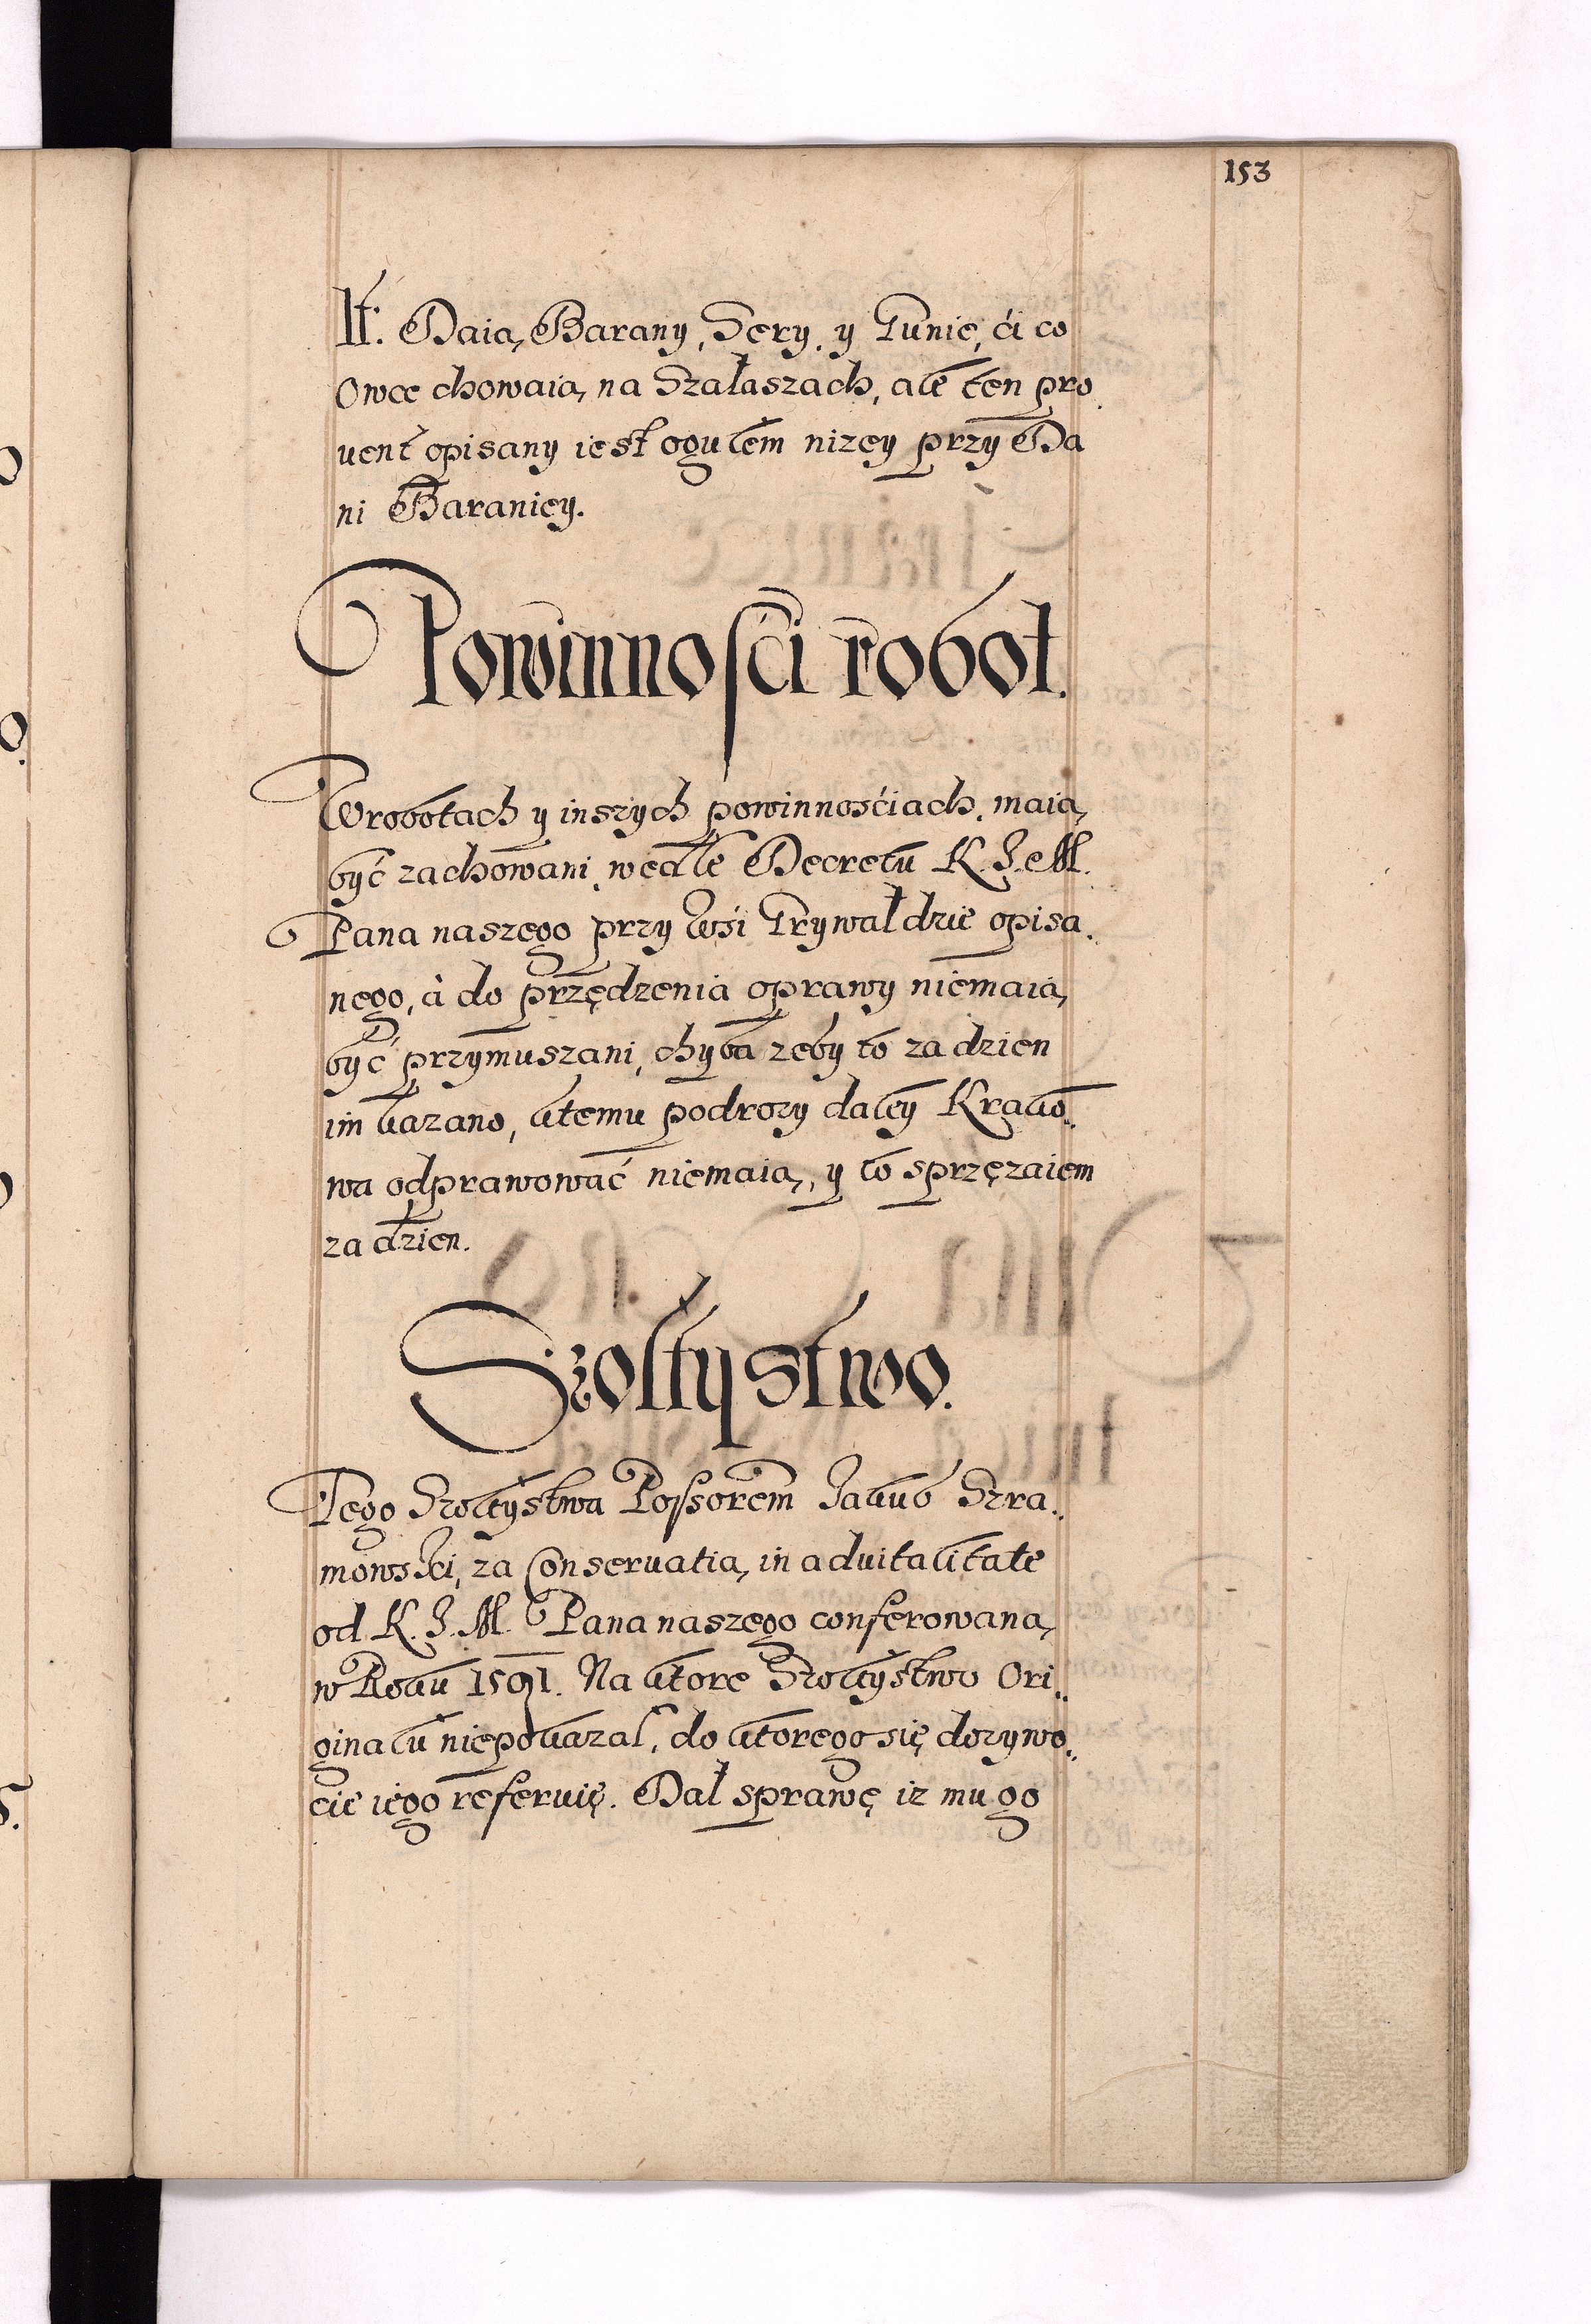 153
It. Daią Barany, Sery, y Gunie, ći co
Owce chowaią na Szałaszach, ale ten pro
uent opisany iest ogulem nizey przy Da
ni Baraniey.
Powinnosći robot.
W robotach y inszych powinnośćiach, maią
być zachowani, wedle Decretu K. J. M.
Pana naszego przy Wśi Grywałdzie opisa.
nego, à do przędzenia oprawy niemaią
być przymuszani, chyba zeby to za dzien
im kazano, ktemu podrozy daley Krako.
wa odprawować niemaią, y to sprzęzaiem
za dzien.
Szoltystwo.
Tego Szoltystwa Possorem Jakub Szra..
mowski, za Conseruatią in aduitalitate
od K. J. M. Pana naszego conferowaną
w Roku 1591. Na ktore Szoltystwo Ori..
ginalu niepokazał, do ktorego się dozywo..
cie iego referuię. Dał sprawę iz mu go